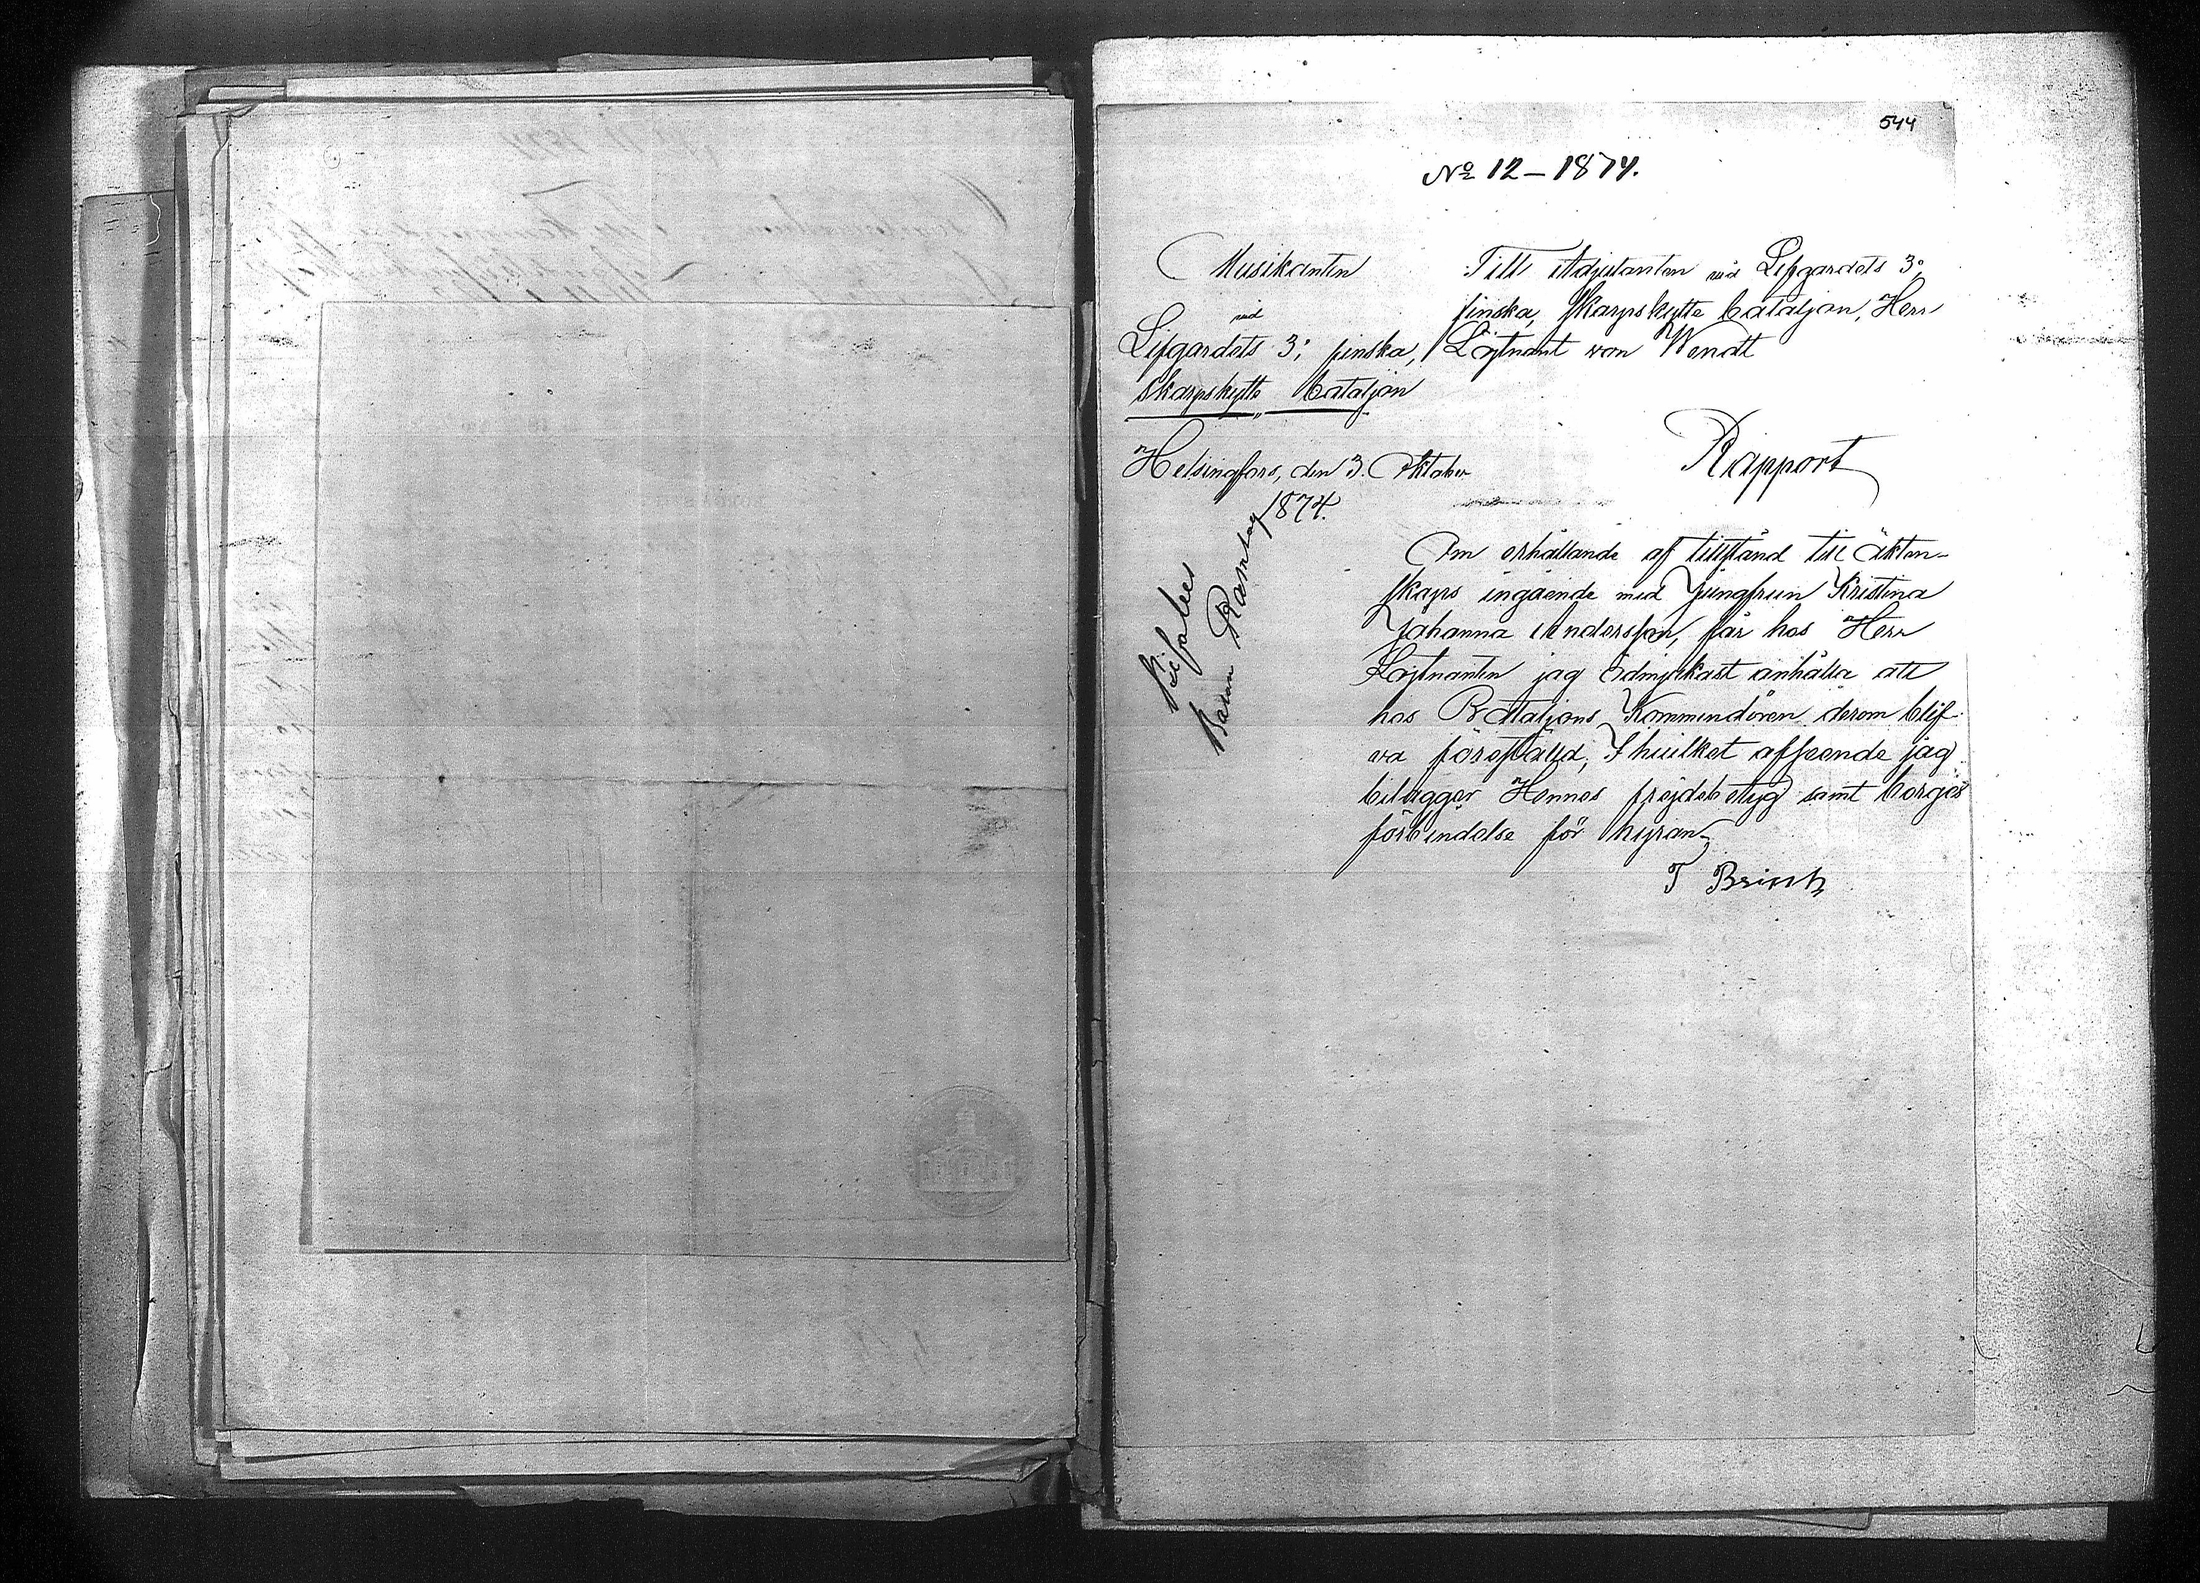 544
No 12 – 1874.
Musikanten
vid
Lifgardets 3: finska,
Skarpskytte Bataljon
Helsingfors, den 3. Oktober
1874.
Till Adjutanten vid Lifgardets 3:
finska, Skarpskytte bataljon, Herr
Löjtnant von Wendt
Rapport
Om erhållande af tillstånd till äkten-
skaps ingående med Jungfrun Kristina
Johanna Andersson, får hos Herr
Löjtnanten jag ödmjukast anhålla att
hos Bataljons Kommendören derom blif-
va föreställd, I hvilket afseende jag
bilägger Hennes frejdebetyg samt borges
förbindelse för hyran,
T Brink
Bifalles
Baron Ramsay